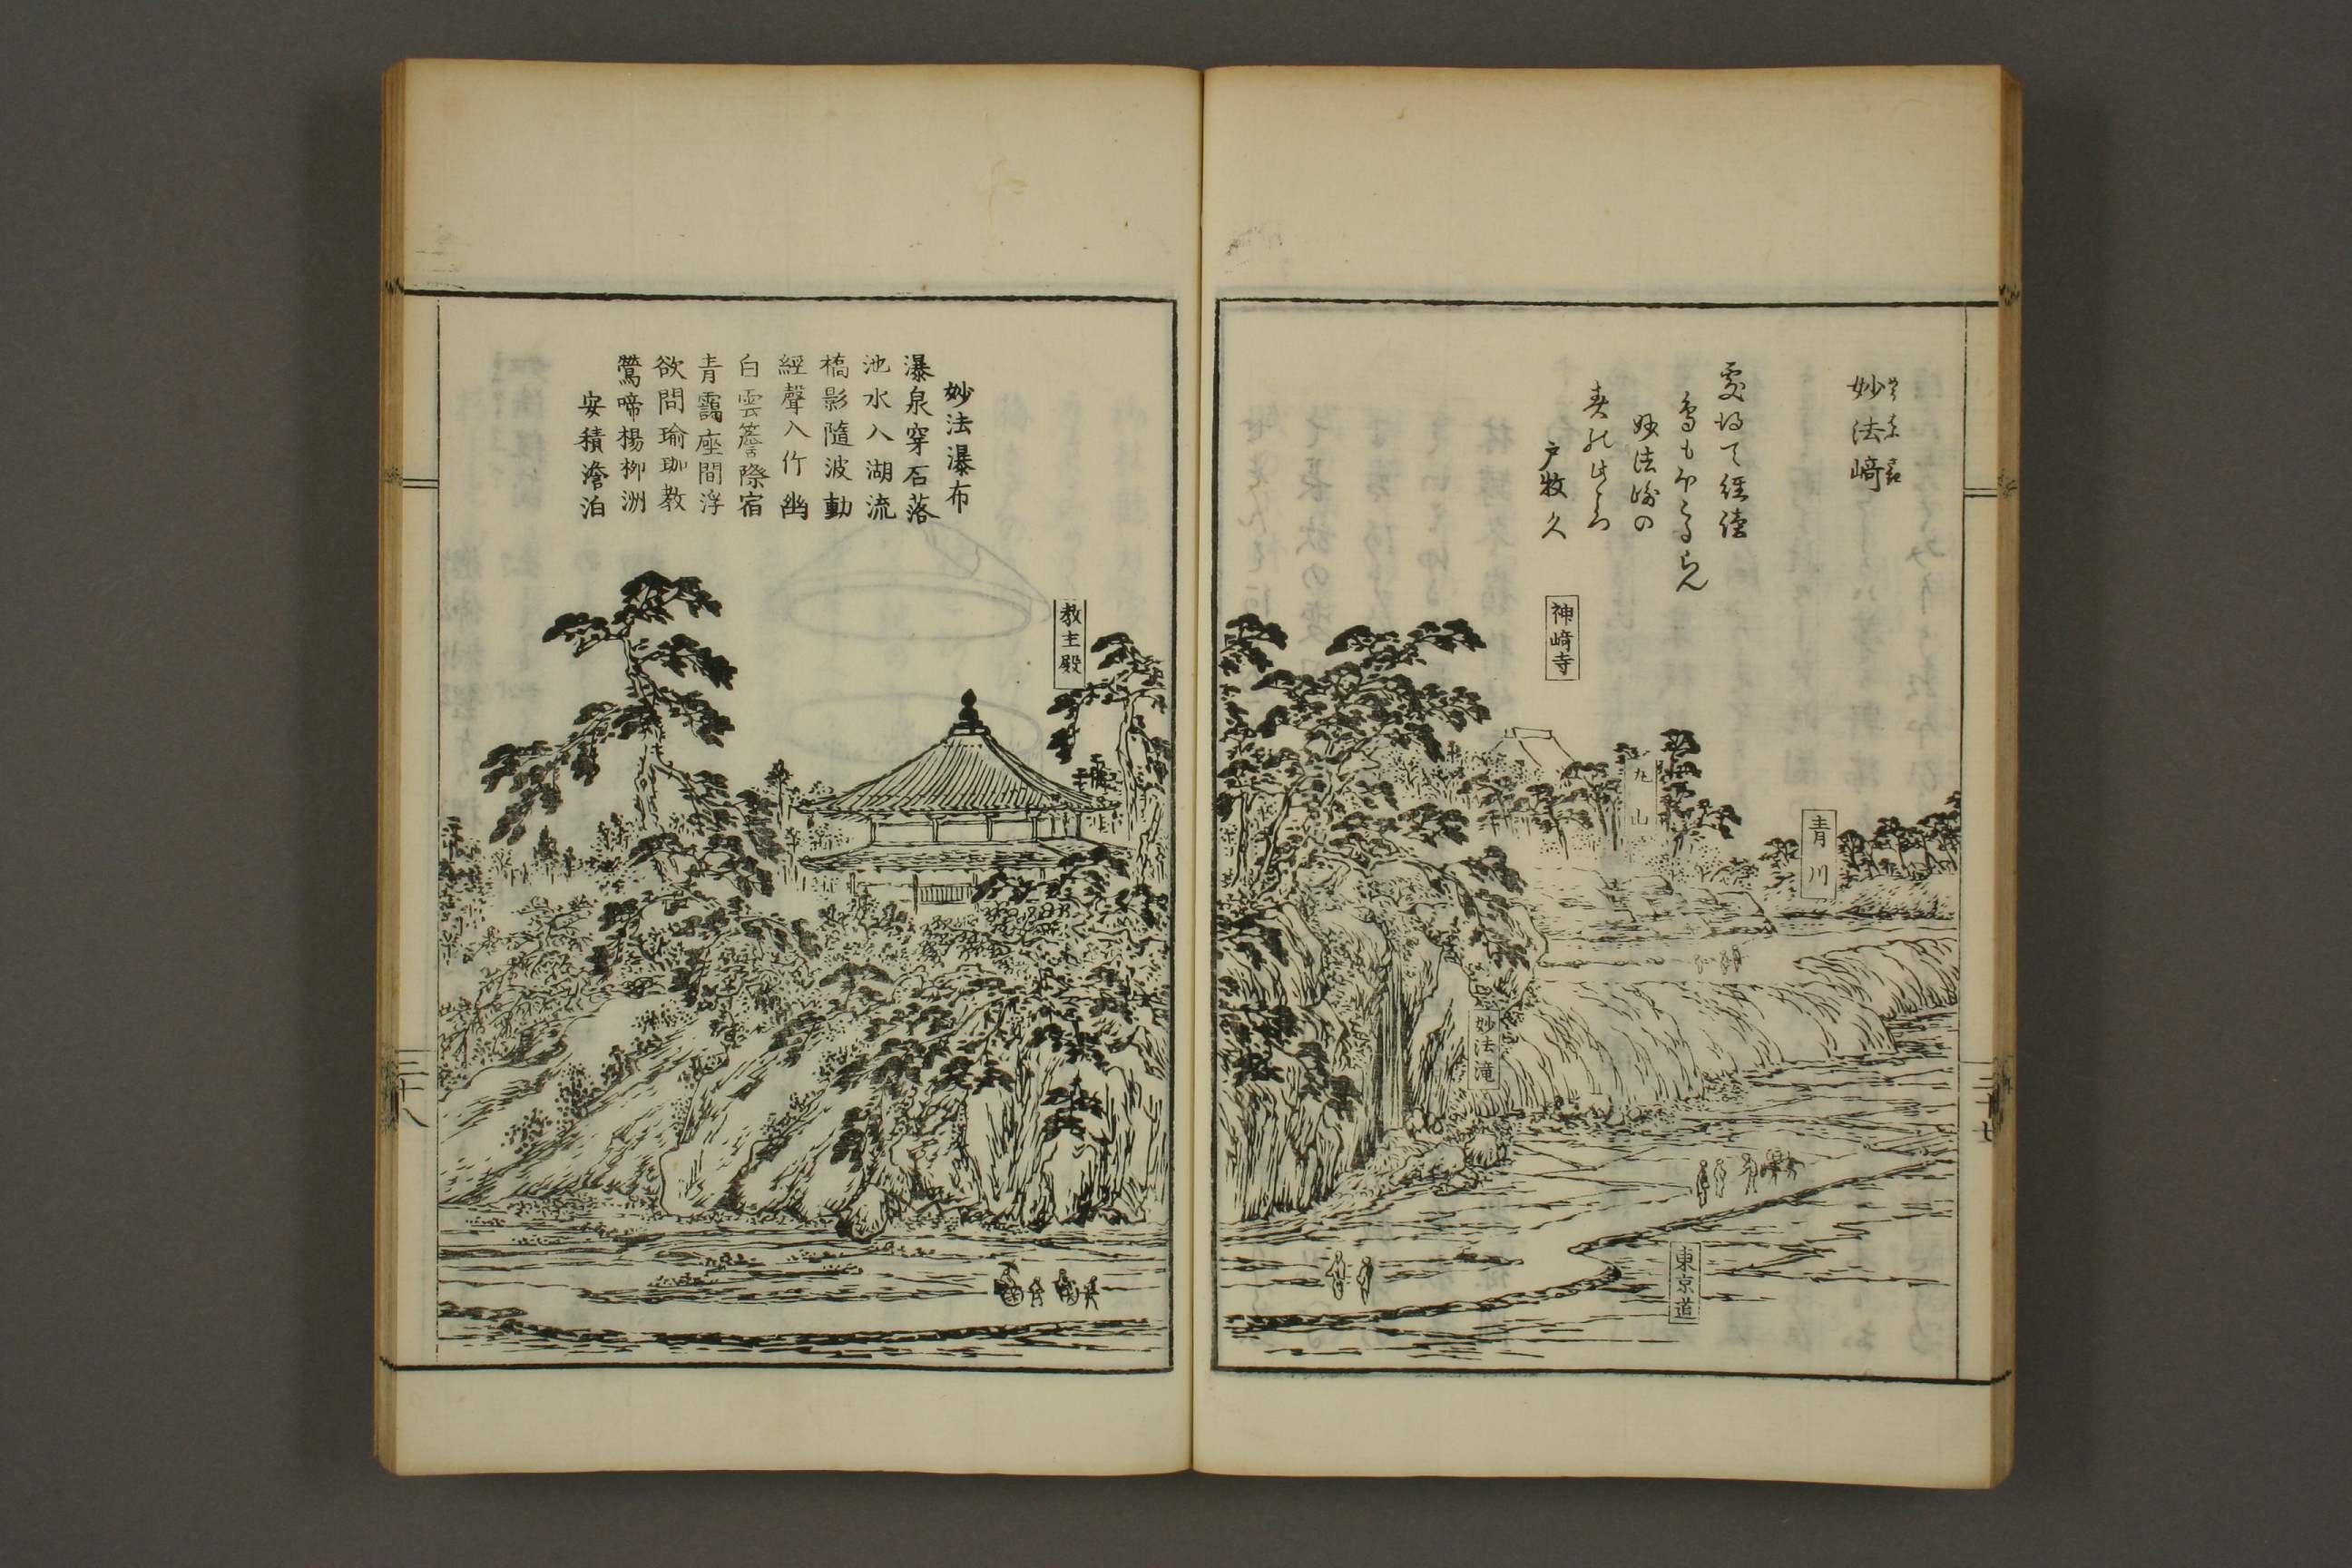 妙法﨑
戸牧久
神﨑寺
丸山
青川
妙法滝
東京道
三十七
妙法瀑布
瀑泉穿石落
池水入湖流
橋影隨波動
經聲入竹幽
白雲簷際宿
青靄座間浮
欲問瑜珈教
鶯啼楊柳洲
安積澹泊
教主殿
三十八